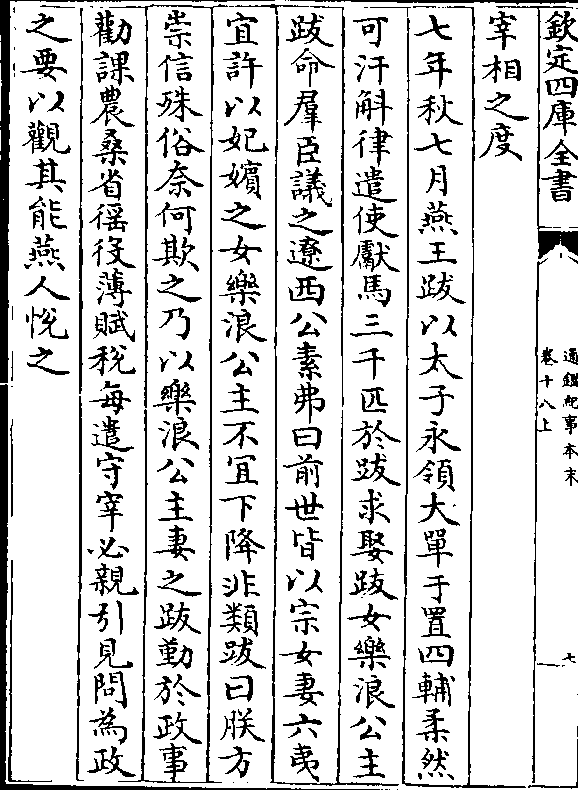 欽定四庫全書
通鑑紀事本末
卷十八上
七
宰相之度
七年秋七月燕王跋以太子永領大單于置四輔柔然
可汗斛律遣使獻馬三千匹於跋求娶跋女樂浪公主
跋命羣臣議之遼西公素弗曰前世皆以宗女妻六夷
宜許以妃嬪之女樂浪公主不宜下降非類跋曰朕方
崇信殊俗奈何欺之乃以樂浪公主妻之跋勤於政事
勸課農桑省徭役薄賦稅每遣守宰必親引見問為政
之要以觀其能燕人悅之